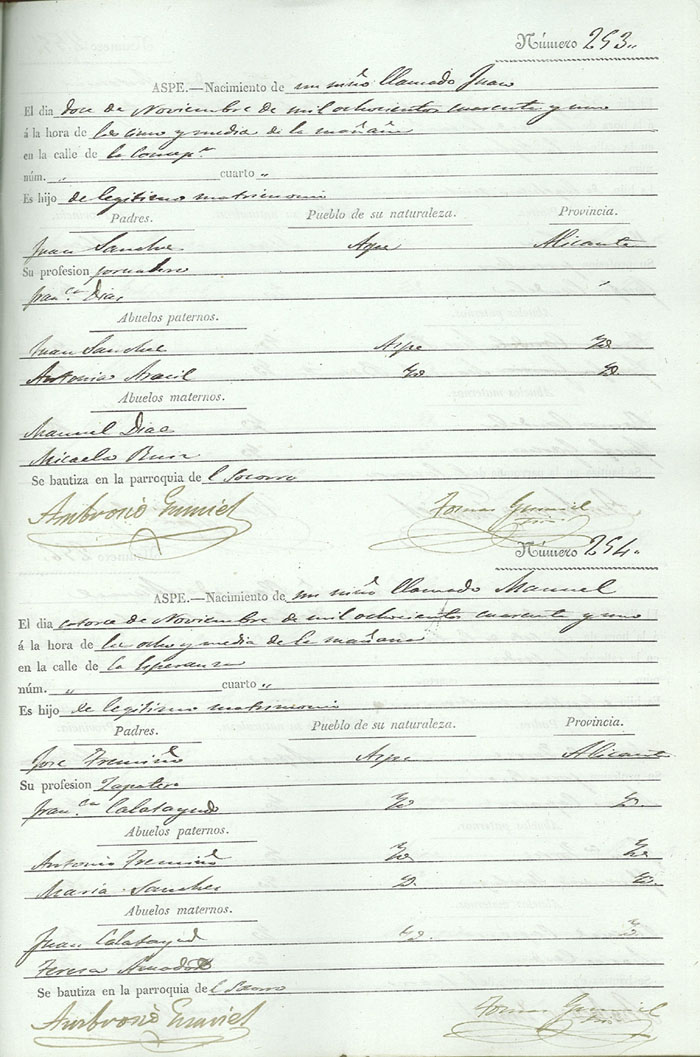 Número 253
ASPE.—Nacimiento de un niño llamado Juan
El dia doce de Noviembre de mil ochocientos cuarenta y uno
á la hora de las cinco y media de la mañana
en la calle de la Concepn
núm. " cuarto "
Es hijo de legitimo matrimonio
Padres. Pueblo de su naturaleza. Provincia.
Juan Sanchez Aspe Alicante
Su profesion jornalero
Franca Dias
Abuelos paternos.
Juan Sanchez Aspe Yd
Antonia Yd Yd
Abuelos maternos.
Manuel Dias
Micaela
Se bautiza en la parroquia del Socorro
Ambrosio Tomas
Número 254
ASPE.—Nacimiento de un niño llamado Manuel
El dia catorce de Noviembre de mil ochocientos cuarenta y uno
á la hora de las ocho y media de la mañana
en la calle de la Esperanza
núm. " cuarto "
Es hijo de legitimo matrimonio
Padres. Pueblo de su naturaleza. Provincia.
Jose Tremiño Aspe Alicante
Su profesion Zapatero
Franca Calatayud Yd Yd.
Abuelos paternos.
Antonio Tremiño Yd Yd
Maria Sanchez Yd. Yd.
Abuelos maternos.
Juan Calatayud Yd. Yd
Teresa
Se bautiza en la parroquia del Socorro
Ambrosio Tomas